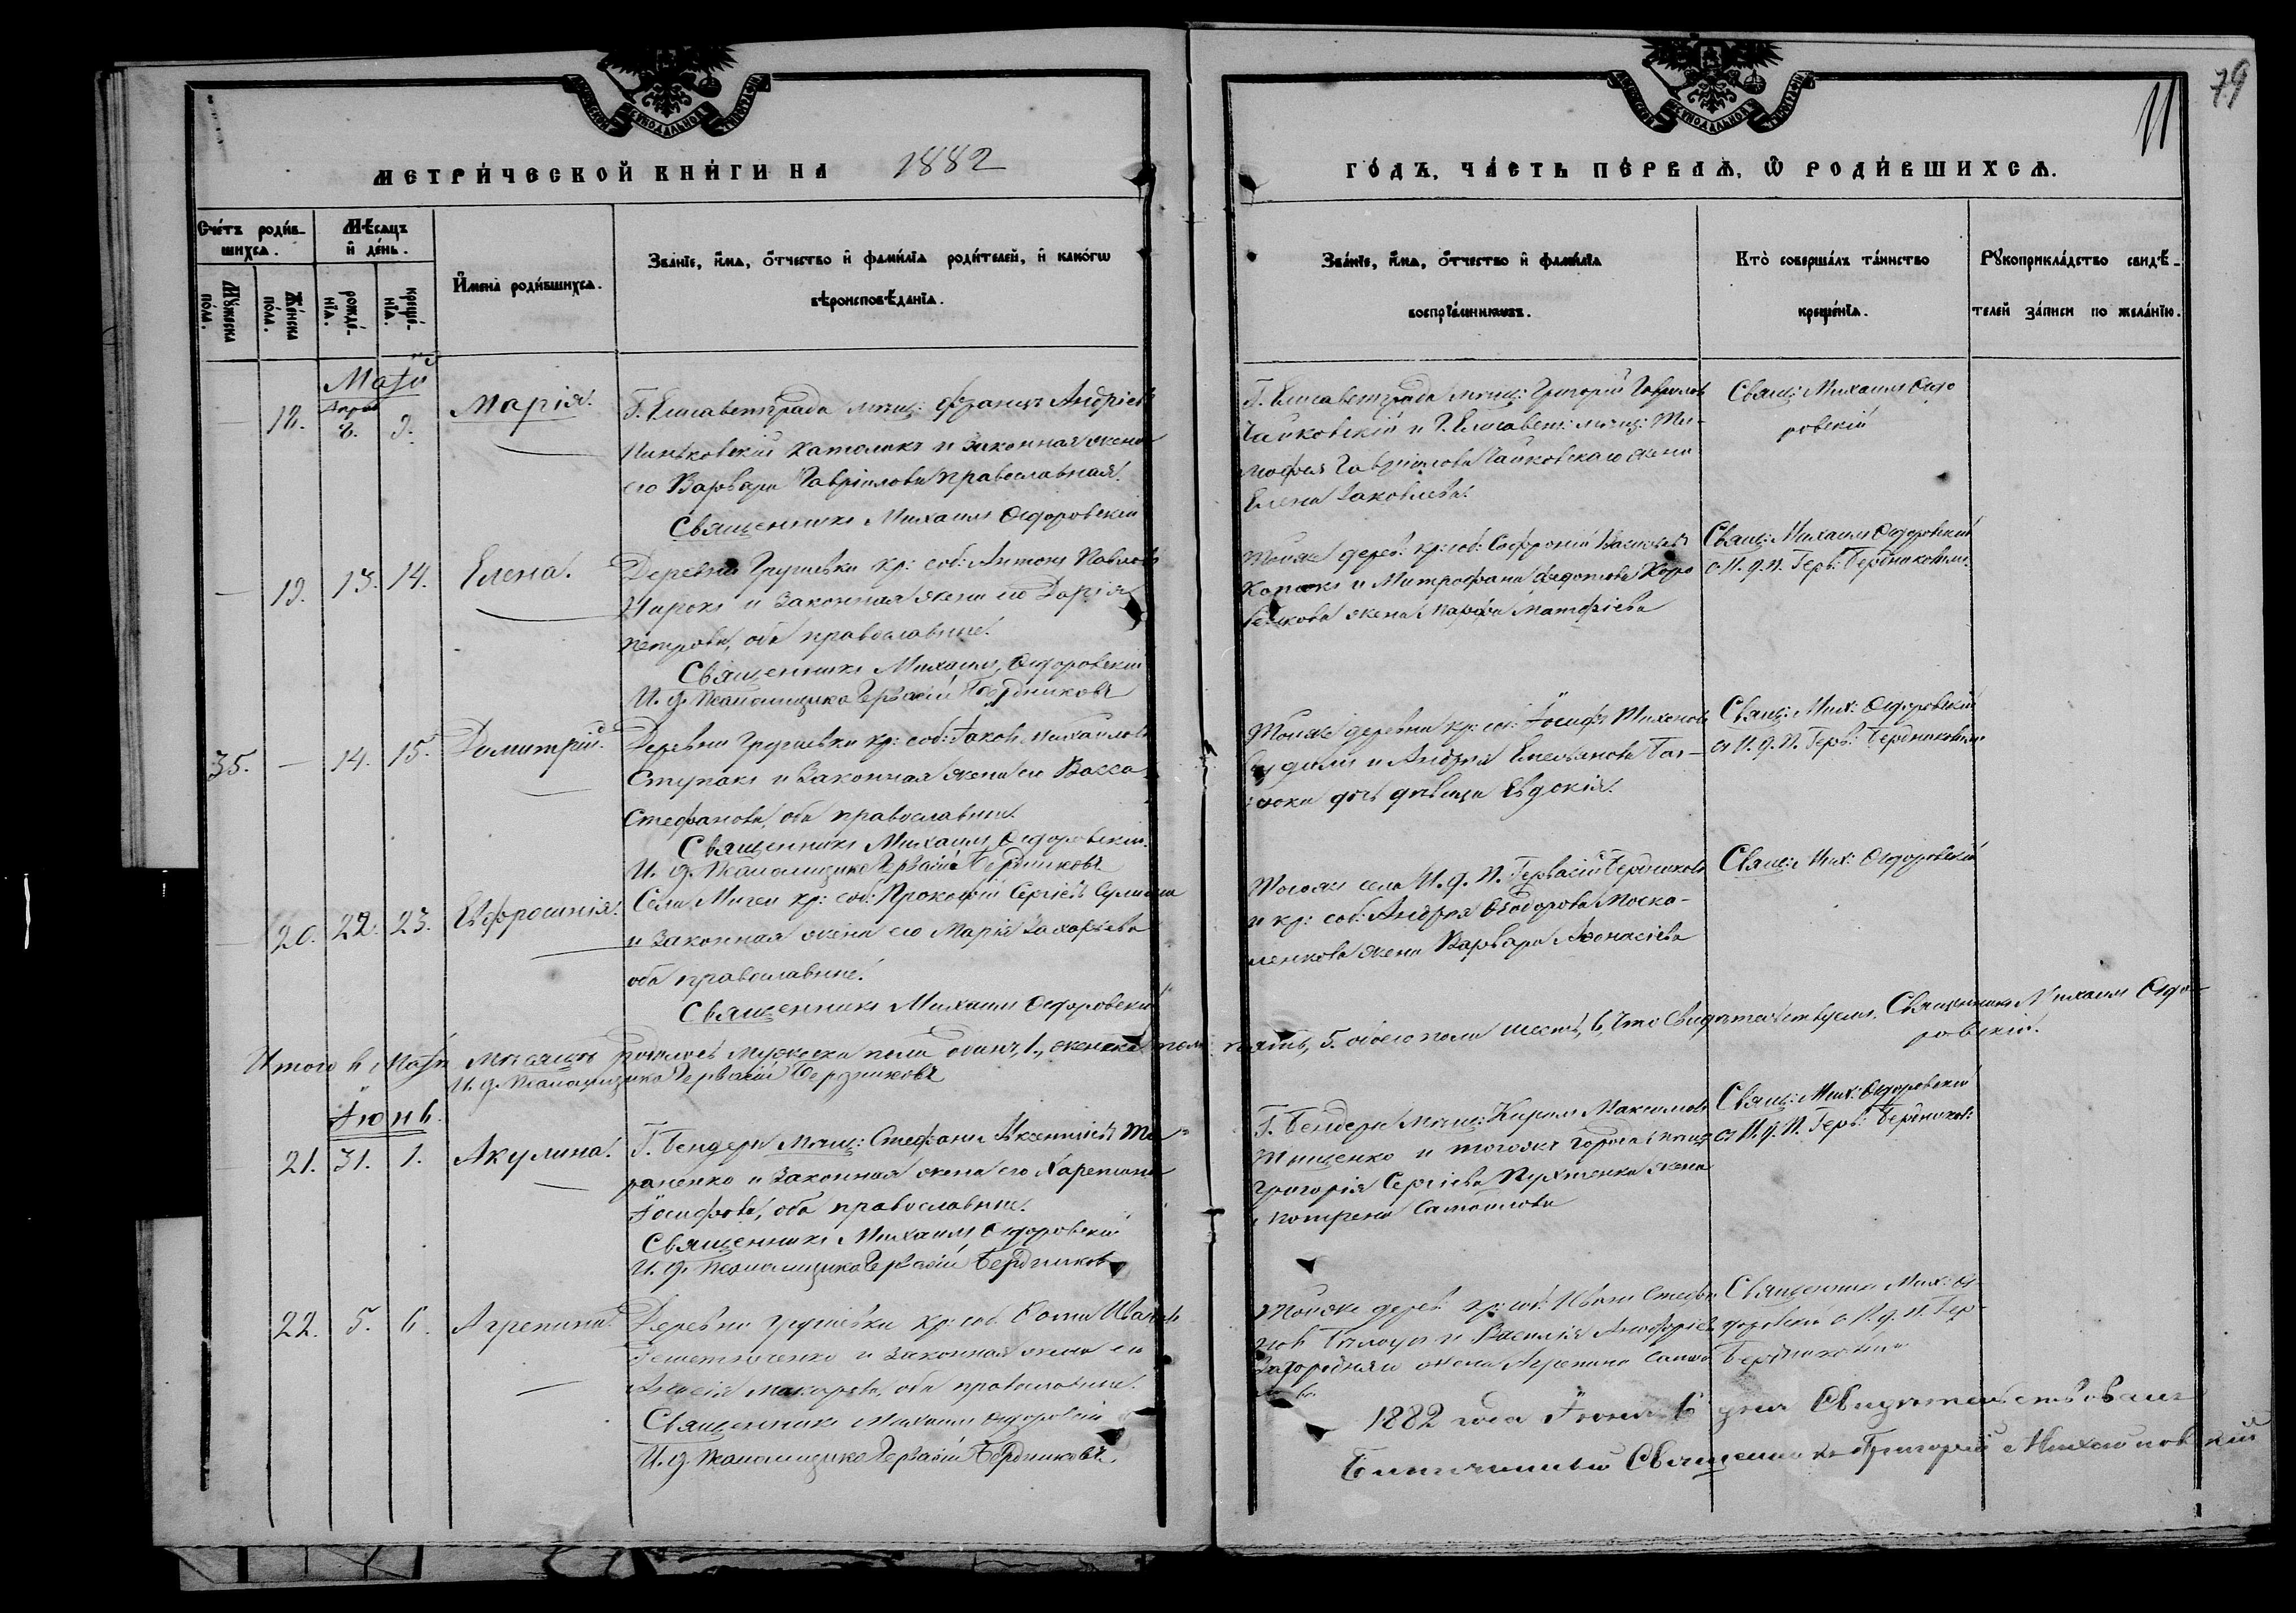 79
11
МЕТРИ́ЧЕСКОЙ КНИ́ГИ НА 1882
ГО́ДЪ, ЧА́СТЬ ПЕ́РВАЯ, Ѽ РОДИ́ВШИХСЯ.
Сче́тъ роди́в-
шихся.
Мѣ́сяцъ
и де́нь.
Му́жеска
по́ла.
Же́нска
по́ла.
рожде́-
нїя.
креще́-
нїя.
И҆мена̀ роди́вшихся.
Зва́нїе, и҆́мя, ѻ҆́тчество и фами́лїа роди́телей, и како́гѡ
вѣроисповѣ́данїя.
Зва́нїе, и҆́мя, ѻ҆́тчество и фами́лїа
воспрїе́мниковъ.
Кто̀ соверша́лъ та́инство
креще́нїя.
Рꙋкоприкла́дство свидѣ́-
телей за́писи по жела́нїю.
Маій
— 18. Апр. 8. 9. Марія.
Г. Елисаветграда мѣщ: Францъ Андріевъ
католикъ и законная жена
его Варвара Гавріилова православная.
Священникъ Михаилъ Сидоровскій
Г. Елисаветграда мѣщ: Григорій Гавриловъ
Чайковскій и Г. Елисавет: мѣщ: Ти-
мофея Гавріилова Чайковскаго жена
Елена Яковлева.
Свящ: Михаилъ Сидо
ровскій
— 19. 13. 14. Елена.
Деревни Грушевки кр: соб: Антонъ Павловъ
Чирокъ и законная жена его Дарія
Петрова, оба православные.
Священникъ Михаилъ Сидоровскій
И. д. Псаломщика Гервасій Бердниковъ
Тойже дерев: кр: соб: Софроній Василіевъ
и Митрофана Федотова
жена Марфа Матфіева
Свящ: Михаилъ Сидоровскій
с И. д. П. Герв: Бердниковымъ
35. — 14. 15. Димитрій.
Деревни Грушевки кр: соб: Іаковъ Михаиловъ
Ступакъ и законная жена его Васса
Стефанова, оба православные.
Священникъ Михаилъ Сидоровскій
И. д. Псаломщика Гервасій Бердниковъ
Тойже деревни кр: соб: Іосифъ Тихоновъ
и Андрея Емельянова
дочь дѣвица Евдокія.
Свящ: Мих: Сидоровскій
съ И. д. П. Герв: Бердниковымъ
— 20. 22. 23. Евфросинія.
Села Мигеи кр: соб: Прокофій Сергіевъ
и законная жена его Марія Захарьева
оба православные.
Священникъ Михаилъ Сидоровскій
Тогоже села И. д. П. Гервасій Бердниковъ
и кр: соб: Андрея Ѳеодорова Моска-
ленкова жена Варвара Аѳонасіева
Свящ: Мих: Сидоровскій
Итого въ Маѣ мѣсяцѣ родилось мужеска пола одинъ, 1., женска пола пять, 5. обоего пола шесть, 6, что свидѣтельствуемъ. Священникъ Михаилъ Сидо-
ровскій.
И. д. Псаломщика Гервасій Бердниковъ
Іюнь.
21. 31. 1. Акулина.
Г. Бендеръ мѣщ: Стефанъ Авксентіевъ Та-
раненко и законная жена его Харитина
Іосифова, оба православные.
Священникъ Михаилъ Сидоровскій
И. д. Псаломщика Гервасій Бердниковъ
Г. Бендеръ мѣщ: Кирилъ Максимовъ
Тищенко и тогожъ города мѣщ:
Григорія Сергіева жена
Мотрена Самойлова
Свящ: Мих: Сидоровскій
съ И. д. П. Герв: Бердников:
22. 5. 6. Агрепина.
Деревни Грушевки кр: соб: Иванъ
и законная жена его
Макарова, оба православные.
Священникъ Михаилъ Сидоровскій
И. д. Псаломщика Гервасій Бердниковъ.
Тойже дерев: кр: соб: Иванъ Стефа-
новъ и Василія
жена Агрепина
Священникъ Мих: Си-
доровскій с И. д. П. Гер-
Бердниковымъ
1882 года Іюня 6 дня Свидѣтельствовалъ
Благочинный Священникъ Григорій Михайловскій